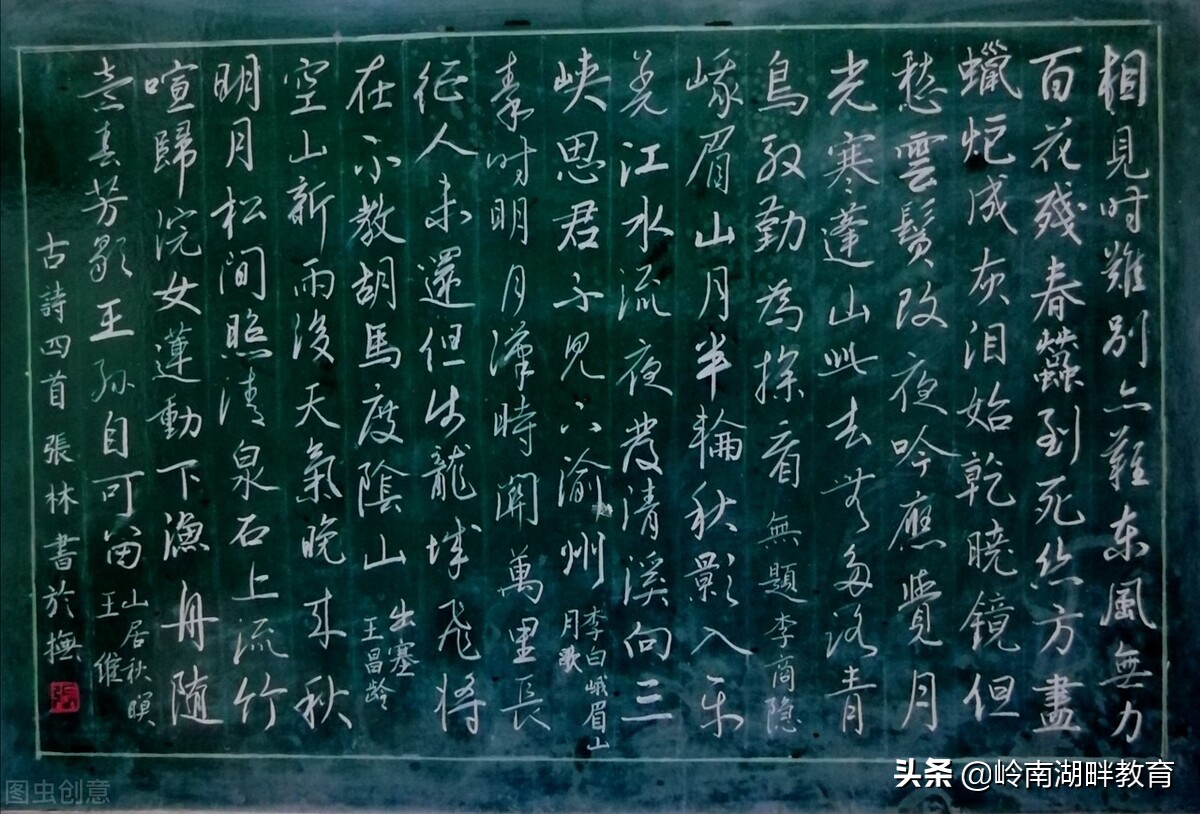 相見时難别亦難东風無力
百花殘春蠶到死丝方盡
蠟炬成灰泪始乾曉鏡但
愁雲鬓改夜吟應覺月
光寒蓬山此去无多路青
鳥殷勤為探看 無題 李商隐
峨眉山月半輪秋影入平
羌江水流夜发清溪向三
峡思君不見下渝州
李白峨眉山
月歌
秦时明月漢時関萬里長
征人未還但使龍城飛将
在不教胡馬度陰山
出塞
王昌龄
空山新雨後天氣晚来秋
明月松间照清泉石上流竹
喧歸浣女蓮動下漁舟随
意春芳歇王孙自可留
山居秋暝
王維
古詩四首 張林書於撫
图虫创意
头条 @岭南湖畔教育